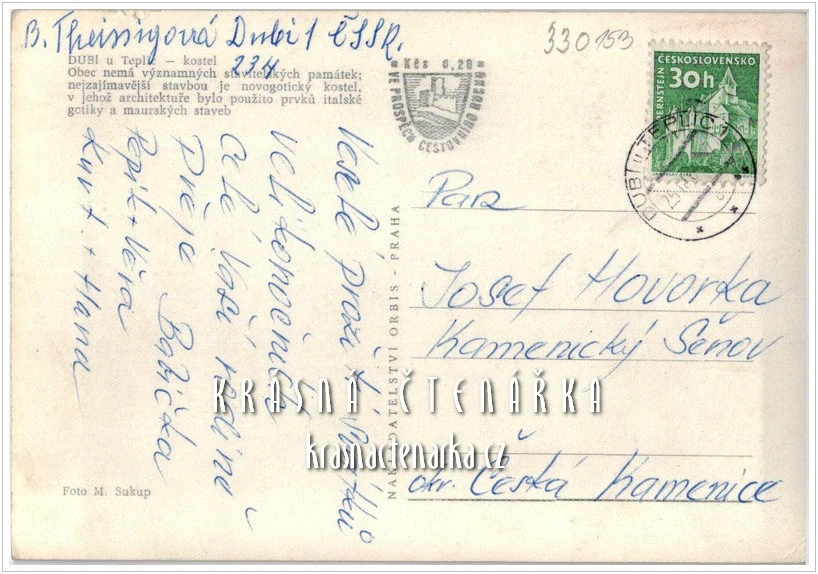 B. Theissigová Dubí 1 ČSSR.
234
330153
DUBÍ u Teplic — kostel
Obec nemá významných stavitelských památek;
nejzajímavější stavbou je novogotický kostel,
v jehož architektuře bylo použito prvků italské
gotiky a maurských staveb
Kčs 0,20
VE PROSPĚCH CESTOVNÍHO RUCHU
ČESKOSLOVENSKO
30h
PERNSTEJN
DUBÍ u TEPLIC 1
Veselé prožití svátků
velikonočních
Celé Vaší rodině
Přeje Babička
Pepík + Věra
Kurt. + Hana
NAKLADATELSTVÍ ORBIS - PRAHA
Pan
Josef Hovorka
Kamenický Šenov
okr. Česká Kamenice
KRÁSNÁ ČTENÁŘKA
krasnactenarka.cz
Foto M. Sukup